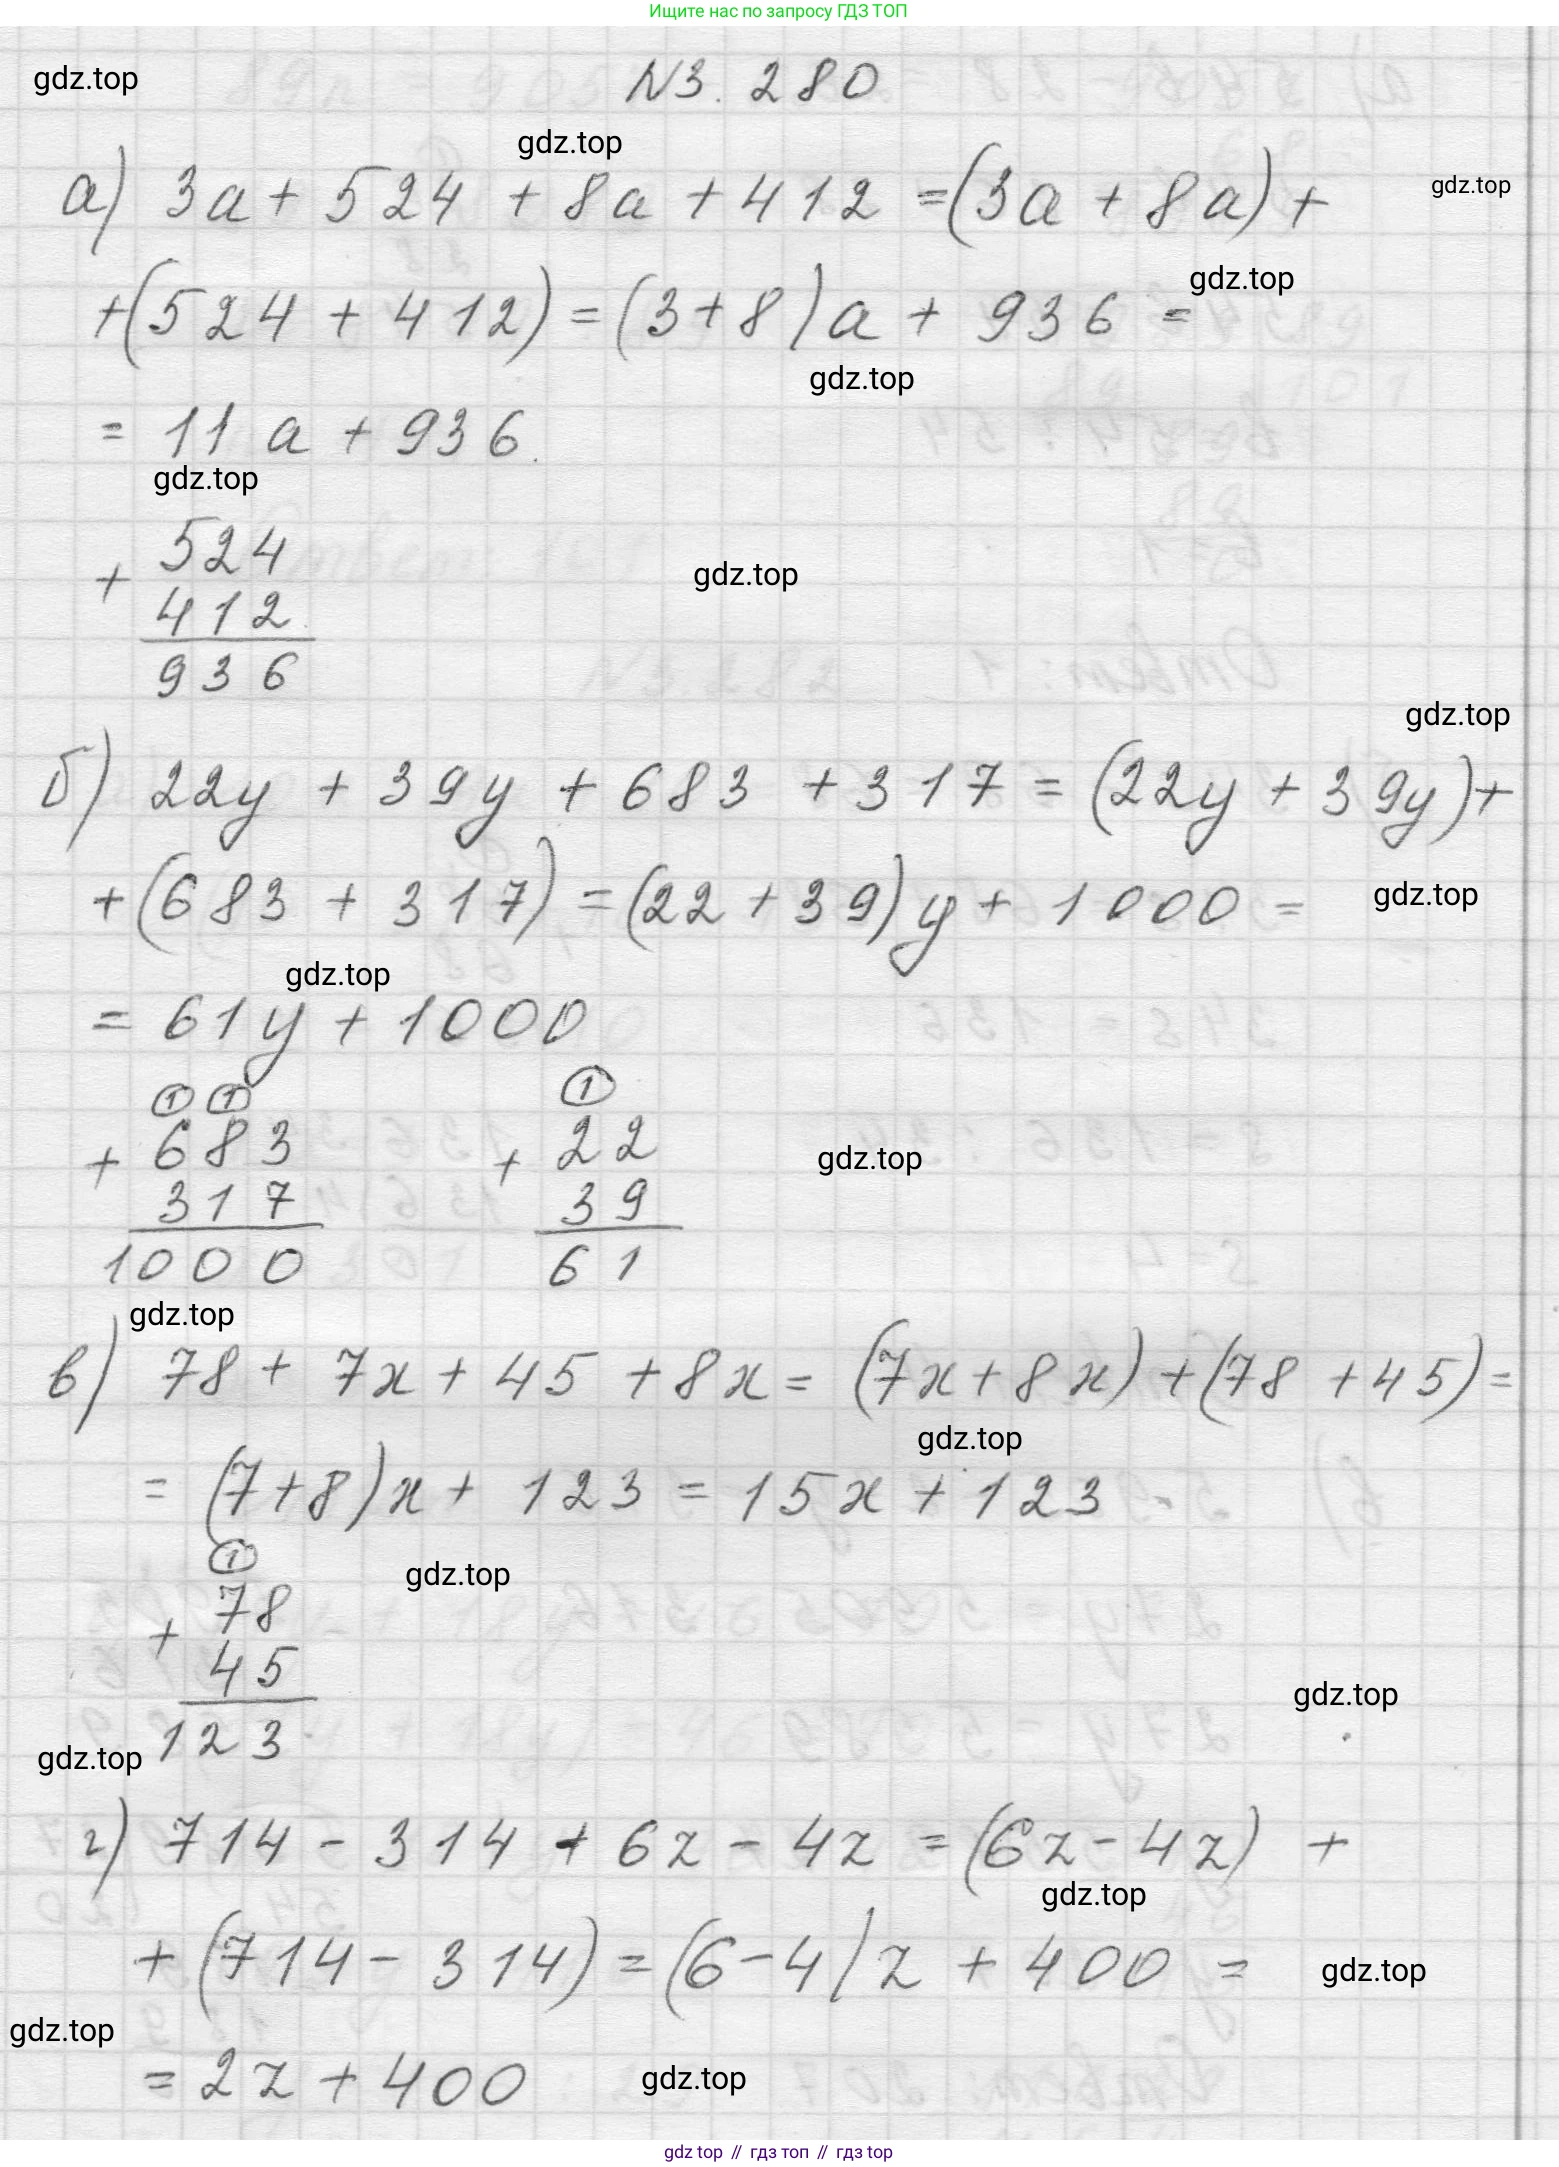 Ищите нас по запросу ГДЗ ТОП
№3.280
gdz.top
gdz.top
а) 3a + 524 + 8a + 412 = (3a + 8a) +
gdz.top
+ (524 + 412) = (3 + 8) a + 936 =
gdz.top
gdz.top
= 11 a + 936.
gdz.top
524
+
412
936
gdz.top
gdz.top
б) 22y + 39y + 683 + 317 = (22y + 39y) +
+ (683 + 317) = (22 + 39) y + 1000 =
gdz.top
gdz.top
= 61y + 1000
1 1
683
+
317
1000
1
22
+
39
61
gdz.top
gdz.top
в) 78 + 7x + 45 + 8x = (7x + 8x) + (78 + 45) =
gdz.top
= (7 + 8) x + 123 = 15x + 123
1
78
+
45
123
gdz.top
gdz.top
gdz.top
г) 714 - 314 + 6z - 4z = (6z - 4z) +
gdz.top
+ (714 - 314) = (6 - 4) z + 400 =
gdz.top
gdz.top
= 2z + 400
gdz.top
gdz top // гдз топ // гдз top